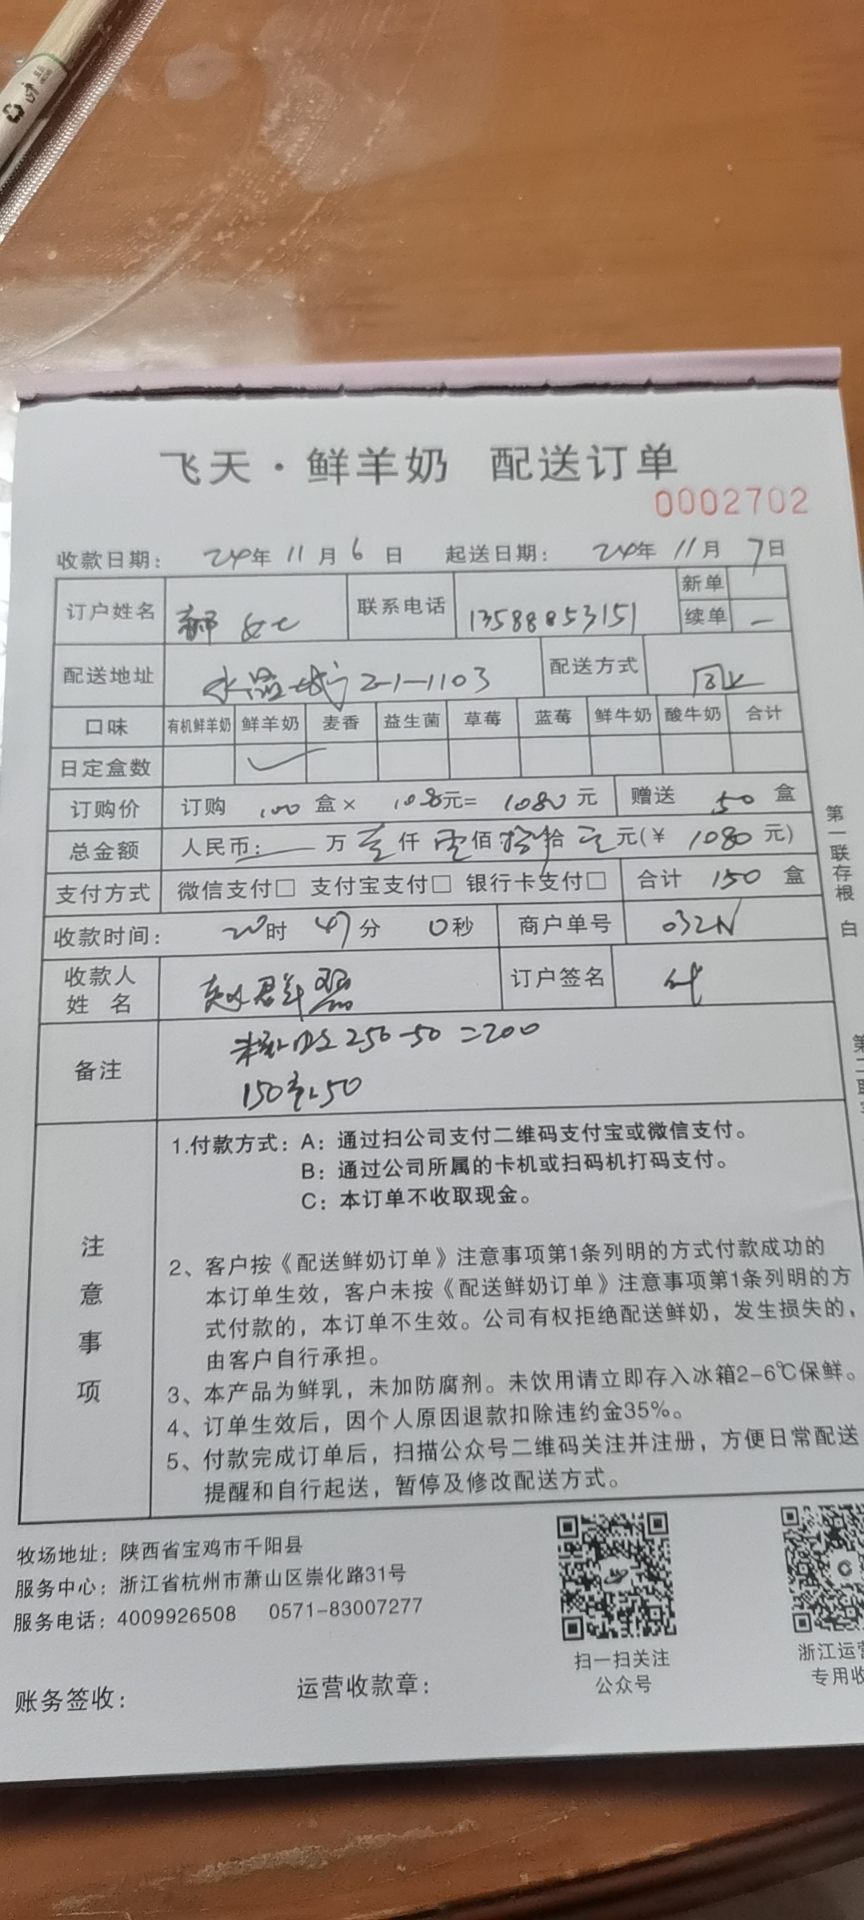 飞天·鲜羊奶 配送订单
0002702
收款日期: 24年11月6日 起送日期: 24年11月7日
订户姓名 郝女士 联系电话 13588853151 新单
续单 一
配送地址 水晶城 2-1-1103 配送方式
口味 有机鲜羊奶 鲜羊奶 麦香 益生菌 草莓 蓝莓 鲜牛奶 酸牛奶 合计
日定盒数 ✓
订购价 订购 100 盒× 10.8元= 1080 元 赠送 50 盒
总金额 人民币: 万壹仟零佰捌拾元(¥ 1080 元)
支付方式 微信支付□ 支付宝支付□ 银行卡支付□ 合计 150 盒
收款时间: 20时 47分 0秒 商户单号 032N
收款人姓名 订户签名 代
备注 250-50=200
150 50
注意事项
1.付款方式: A: 通过扫公司支付二维码支付宝或微信支付。
B: 通过公司所属的卡机或扫码机打码支付。
C: 本订单不收取现金。
2、客户按《配送鲜奶订单》注意事项第1条列明的方式付款成功的
本订单生效，客户未按《配送鲜奶订单》注意事项第1条列明的方
式付款的，本订单不生效。公司有权拒绝配送鲜奶，发生损失的，
由客户自行承担。
3、本产品为鲜乳，未加防腐剂。未饮用请立即存入冰箱2-6℃保鲜。
4、订单生效后，因个人原因退款扣除违约金35%。
5、付款完成订单后，扫描公众号二维码关注并注册，方便日常配送
提醒和自行起送，暂停及修改配送方式。
第一联存根 白
第二联
牧场地址: 陕西省宝鸡市千阳县
服务中心: 浙江省杭州市萧山区崇化路31号
服务电话: 4009926508 0571-83007277
扫一扫关注
公众号
浙江运营
专用收
账务签收: 运营收款章: